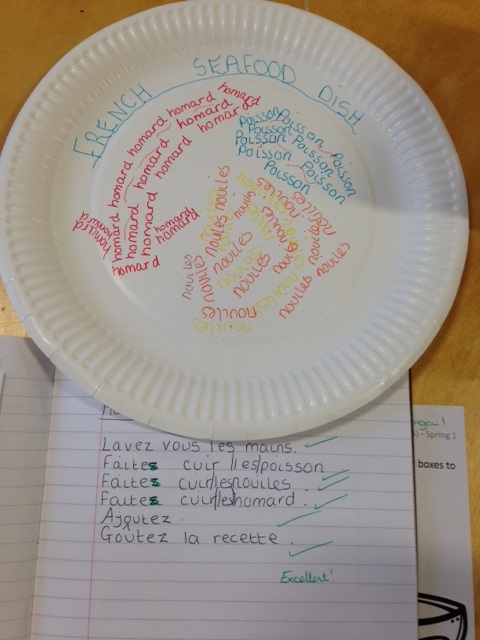 FRENCH SEAFOOD DISH
homard homard homard homard
homard homard homard homard
homard homard homard
homard homard
homard homard
homard
Poisson Poisson Poisson
Poisson Poisson
Poisson Poisson
Poisson Poisson
nouilles nouilles nouilles
nouilles nouilles nouilles
nouilles nouilles nouilles
nouilles nouilles nouilles
nouilles
Lavez vous les mains.
Faites cuir les poisson
Faites cuir les nouiles
Faites cuir les homard.
Ajoutez.
Goûtez la recette.
Excellent!
- Spring 1
boxes to